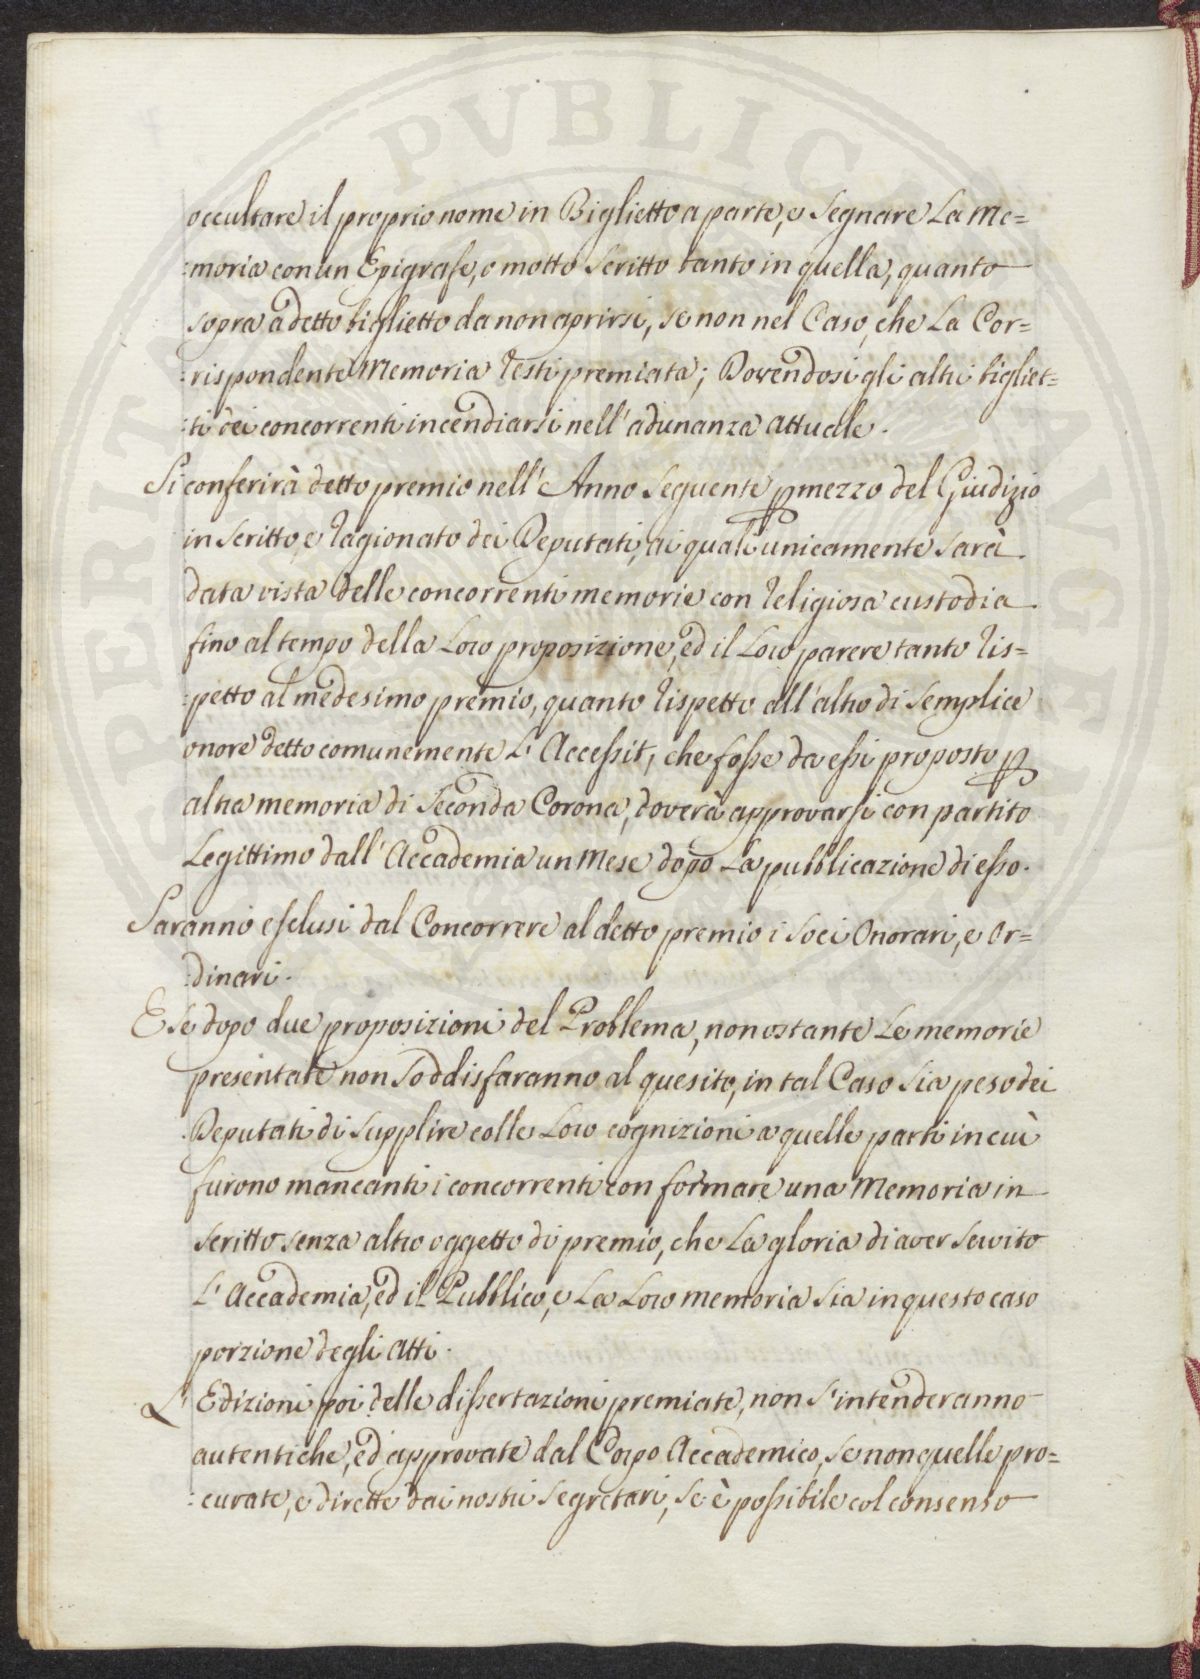 occultare il proprio nome in Biglietto a parte, e segnare La Me=
:moria con un Epigrafe, o motto scritto tanto in quella, quanto
sopra a detto biglietto da non aprirsi, se non nel Caso, che La Cor=
:rispondente Memoria resti premiata; Dovendosi gli altri bigliet=
:ti dei concorrenti incendiarsi nell'adunanza attuale.
Si conferirà detto premio nell'Anno seguente p mezzo del Giudizio
in scritto, e ragionato dei Deputati, ai quali unicamente sarà
data vista delle concorrenti memorie con religiosa custodia
fino al tempo della Loro proposizione, ed il Loro parere tanto ris=
:petto al medesimo premio, quanto rispetto all'altro di semplice
onore detto comunemente L'Accessit, che fosse da essi proposto p
altra memoria di seconda Corona, doverà approvarsi con partito
Legittimo dall'Accademia un Mese dopo La pubblicazione di esso.
Saranno esclusi dal Concorrere al detto premio i Soci Onorari, e Or=
:dinari.
E se dopo due proposizioni del Problema, nonostante Le memorie
presentate non soddisfaranno al quesito, in tal Caso sia peso dei
Deputati di supplire colle Loro cognizioni a quelle parti in cui
furono mancanti i concorrenti con formare una Memoria in
scritto senza altro oggetto di premio, che La gloria di aver servito
L'Accademia, ed il Pubblico, e La Loro memoria sia in questo caso
porzione degli Atti.
L'Edizioni poi delle dissertazioni premiate, non s'intenderanno
autentiche, ed approvate dal Corpo Accademico, se non quelle pro=
:curate, e dirette dai nostri Segretari, se è possibile col consenso